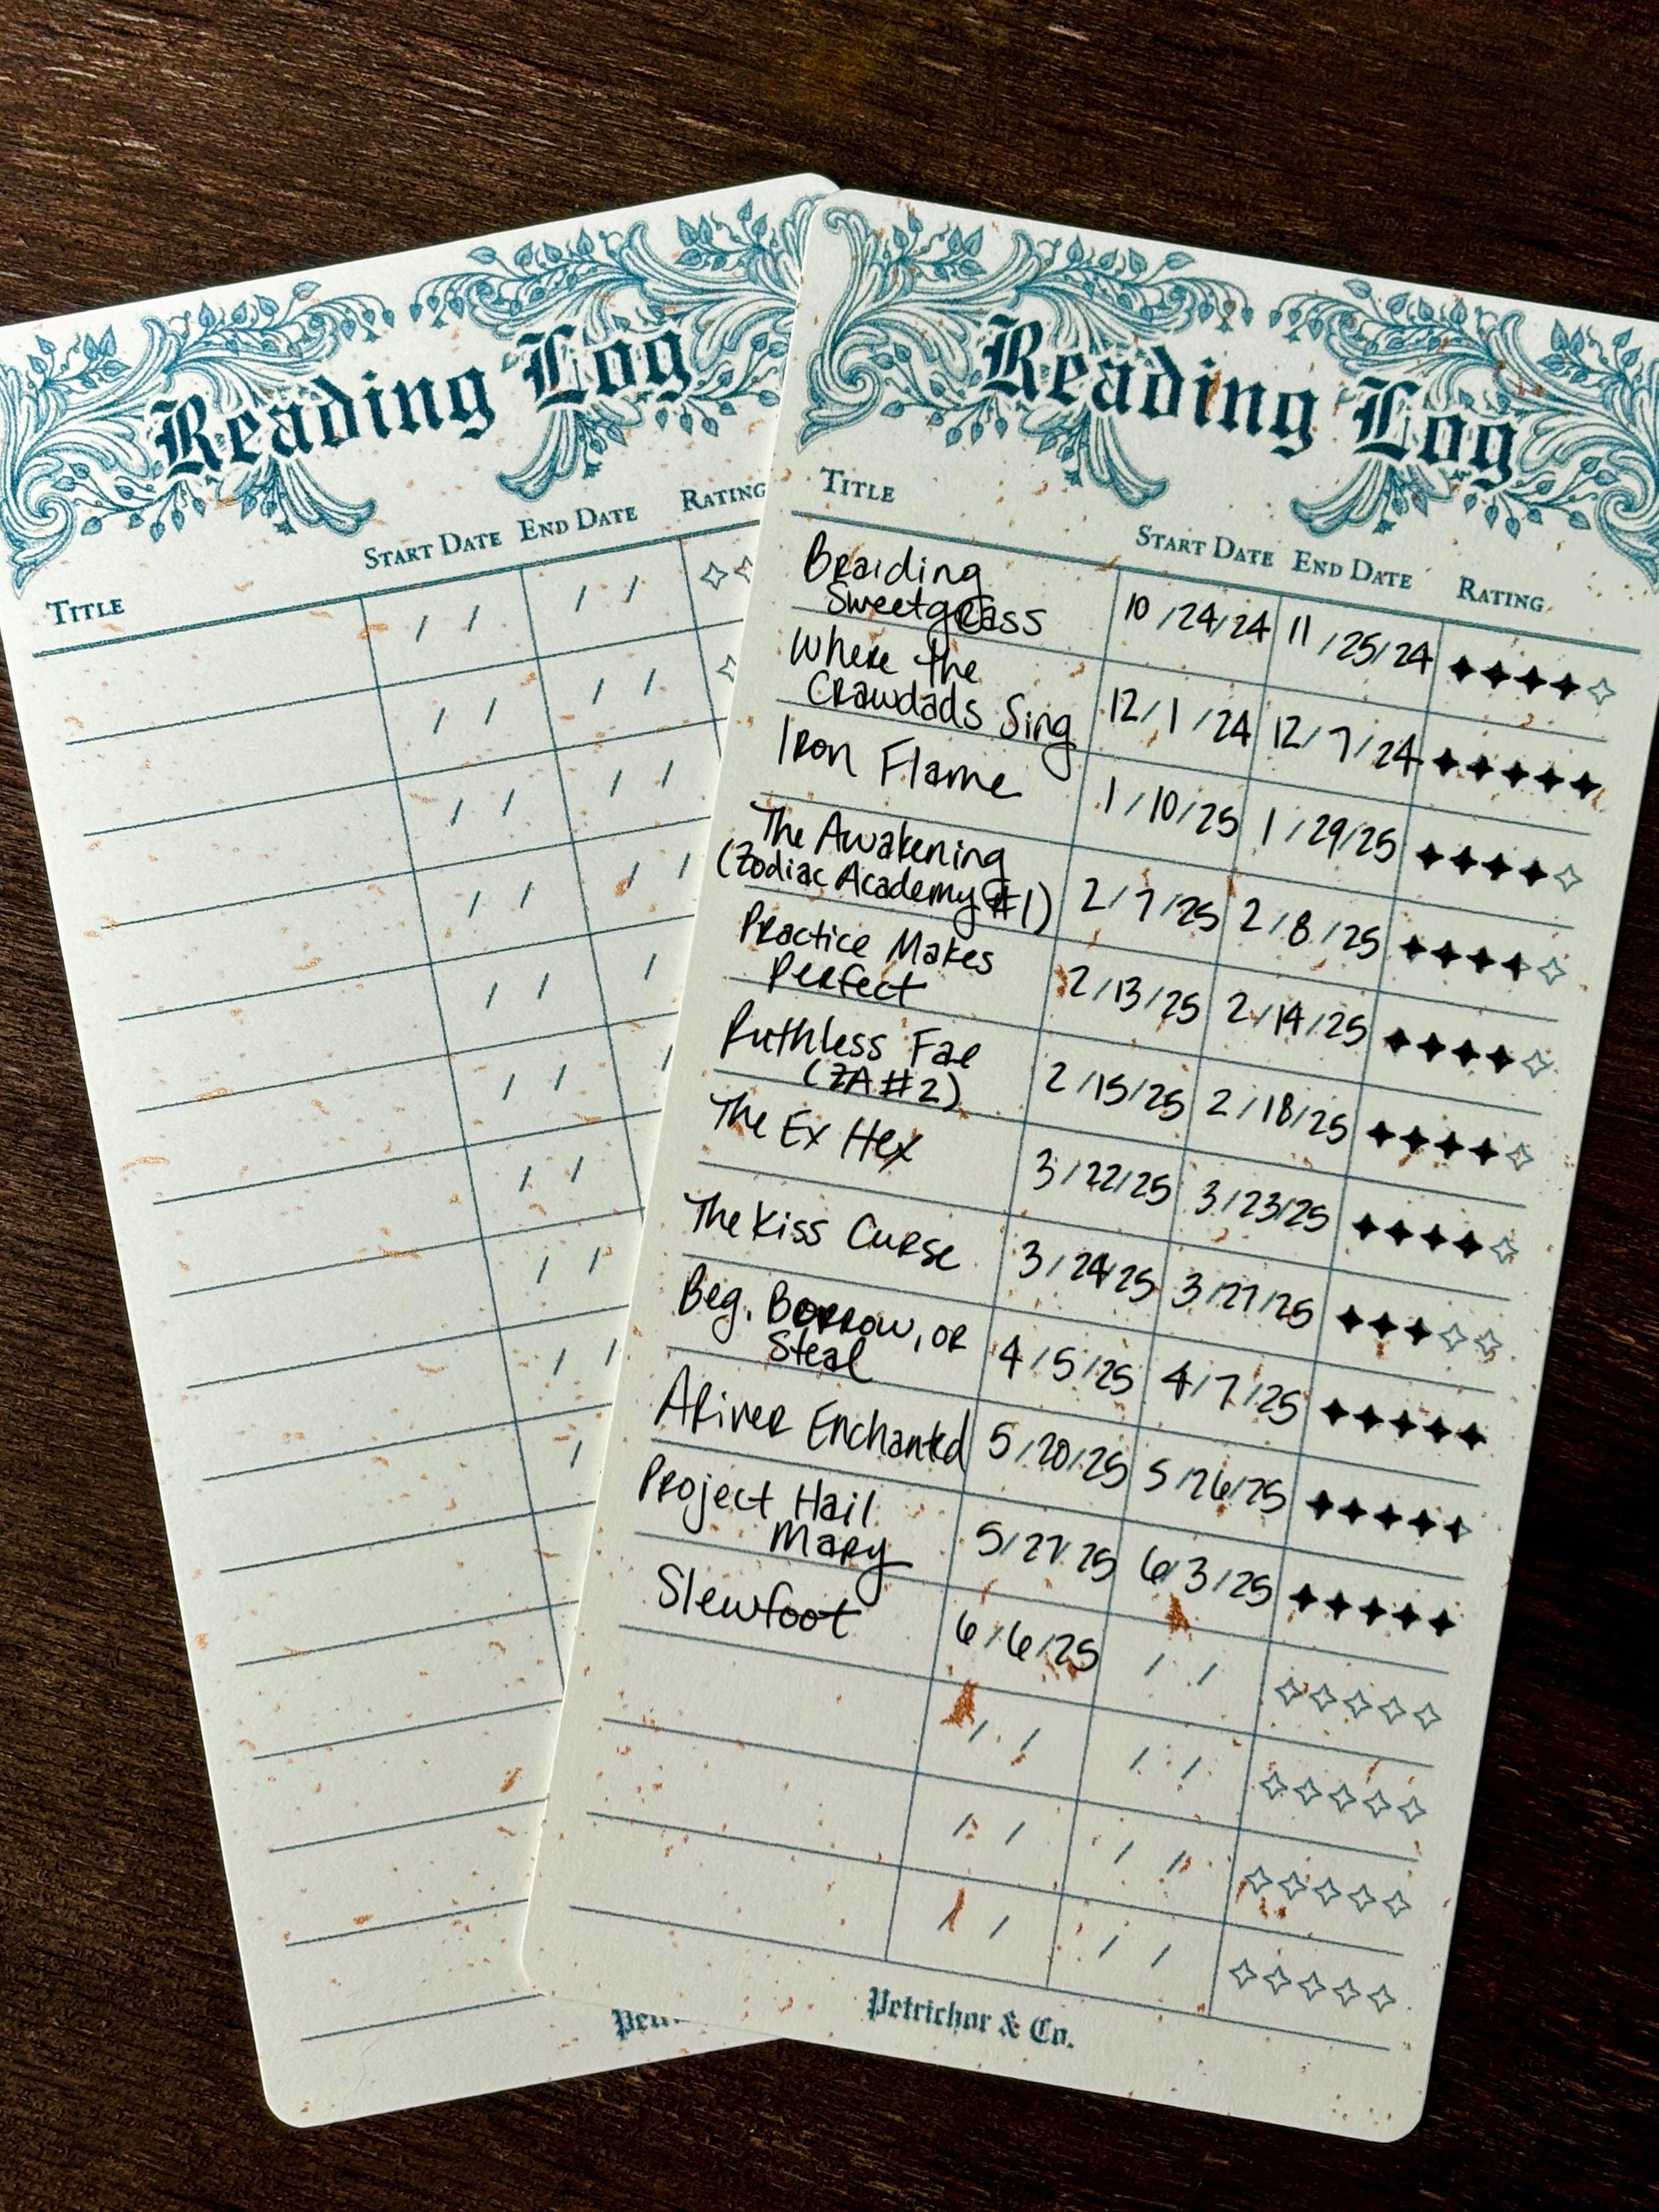 Reading Log
TITLE START DATE END DATE RATING
/ /
/ /
Reading Log
TITLE START DATE END DATE RATING
Braiding
Sweetgrass 10/24/24 11/25/24
Where the
Crawdads Sing 12/1/24 12/7/24
Iron Flame 1/10/25 1/29/25
The Awakening
(Zodiac Academy #1) 2/7/25 2/8/25
Practice Makes
Perfect 2/13/25 2/14/25
Ruthless Fae
(ZA #2) 2/15/25 2/18/25
The Ex Hex 3/22/25 3/23/25
The Kiss Curse 3/24/25 3/27/25
Beg, Borrow, or
Steal 4/5/25 4/7/25
A River Enchanted 5/20/25 5/26/25
Project Hail
Mary 5/27/25 6/3/25
Slewfoot 6/6/25
Petrichor & Co.